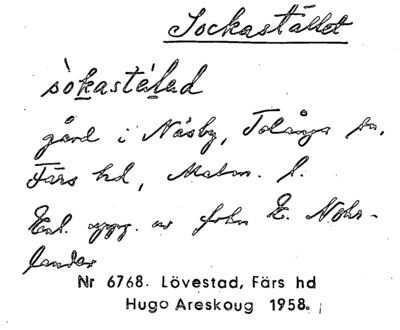 Sockastället
sòkastälad
gård i Näsby, Tolånga sn,
Färs hd, Malm. l.
Enl. uppg. av frkn E. Nohr-
lander
Nr 6768. Lövestad, Färs hd
Hugo Areskoug 1958.